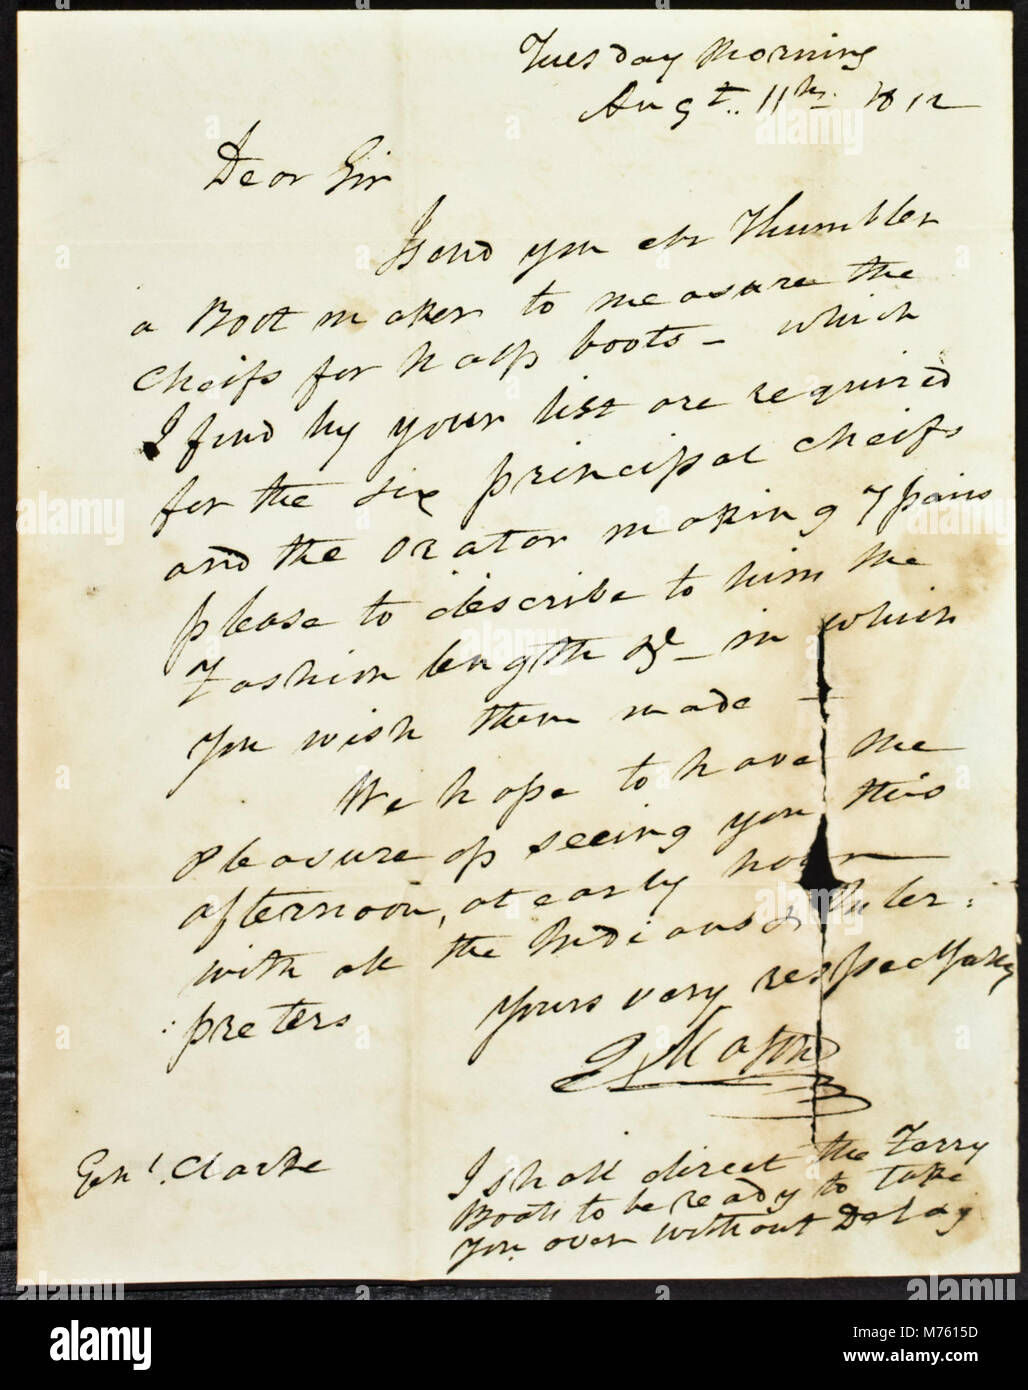 Tuesday Morning
Augt. 11th. 1812
Dear Sir
I send you Mr Thumbler
a Boot maker to measure the
Cheifs for half boots – which
I find by your list are required
for the six principal cheifs
and the Orator making 7 pairs
please to describe to him the
Fashion length &c – in which
You wish them made –
We hope to have the
pleasure of seeing you this
afternoon, at early hour
with all the Indians & Inter:
:preters
Yours very respectfully
J Mason
Genl. Clarke
I shall direct the Ferry
Boat to be ready to take
You over without Delay
alamy
Image ID: M7615D
www.alamy.com